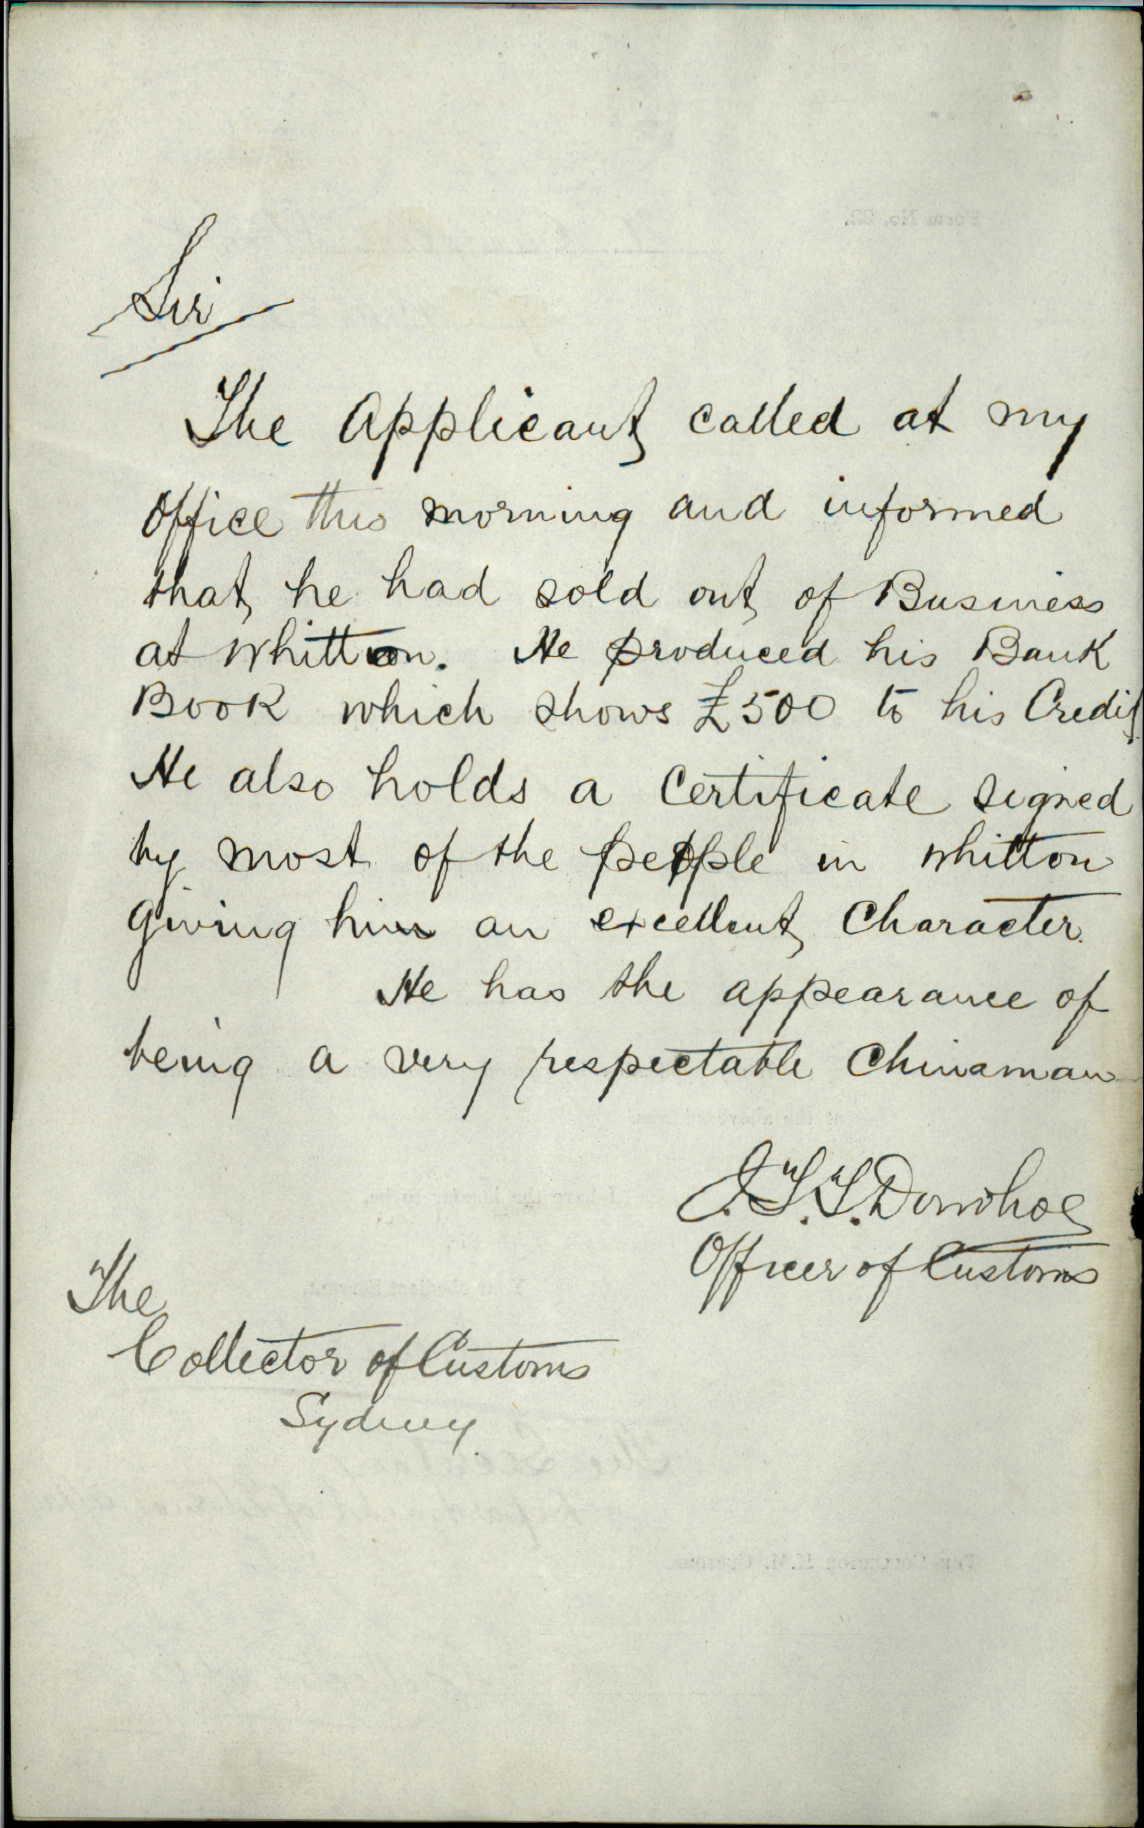 Sir
The Applicant called at my
Office this morning and informed
that he had sold out of Business
at Whitton. He produced his Bank
Book which shows £500 to his Credit
He also holds a Certificate signed
by most of the people in Whitton
giving him an excellent Character.
He has the appearance of
being a very respectable Chinaman
J.T.T. Donohoe
Officer of Customs
The
Collector of Customs
Sydney